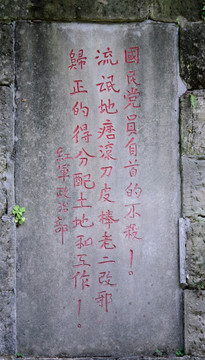 国民党員自首的不殺！。
流氓地痞滚刀皮棒老二改邪
歸正的得分配土地和互作！。
紅軍政治部